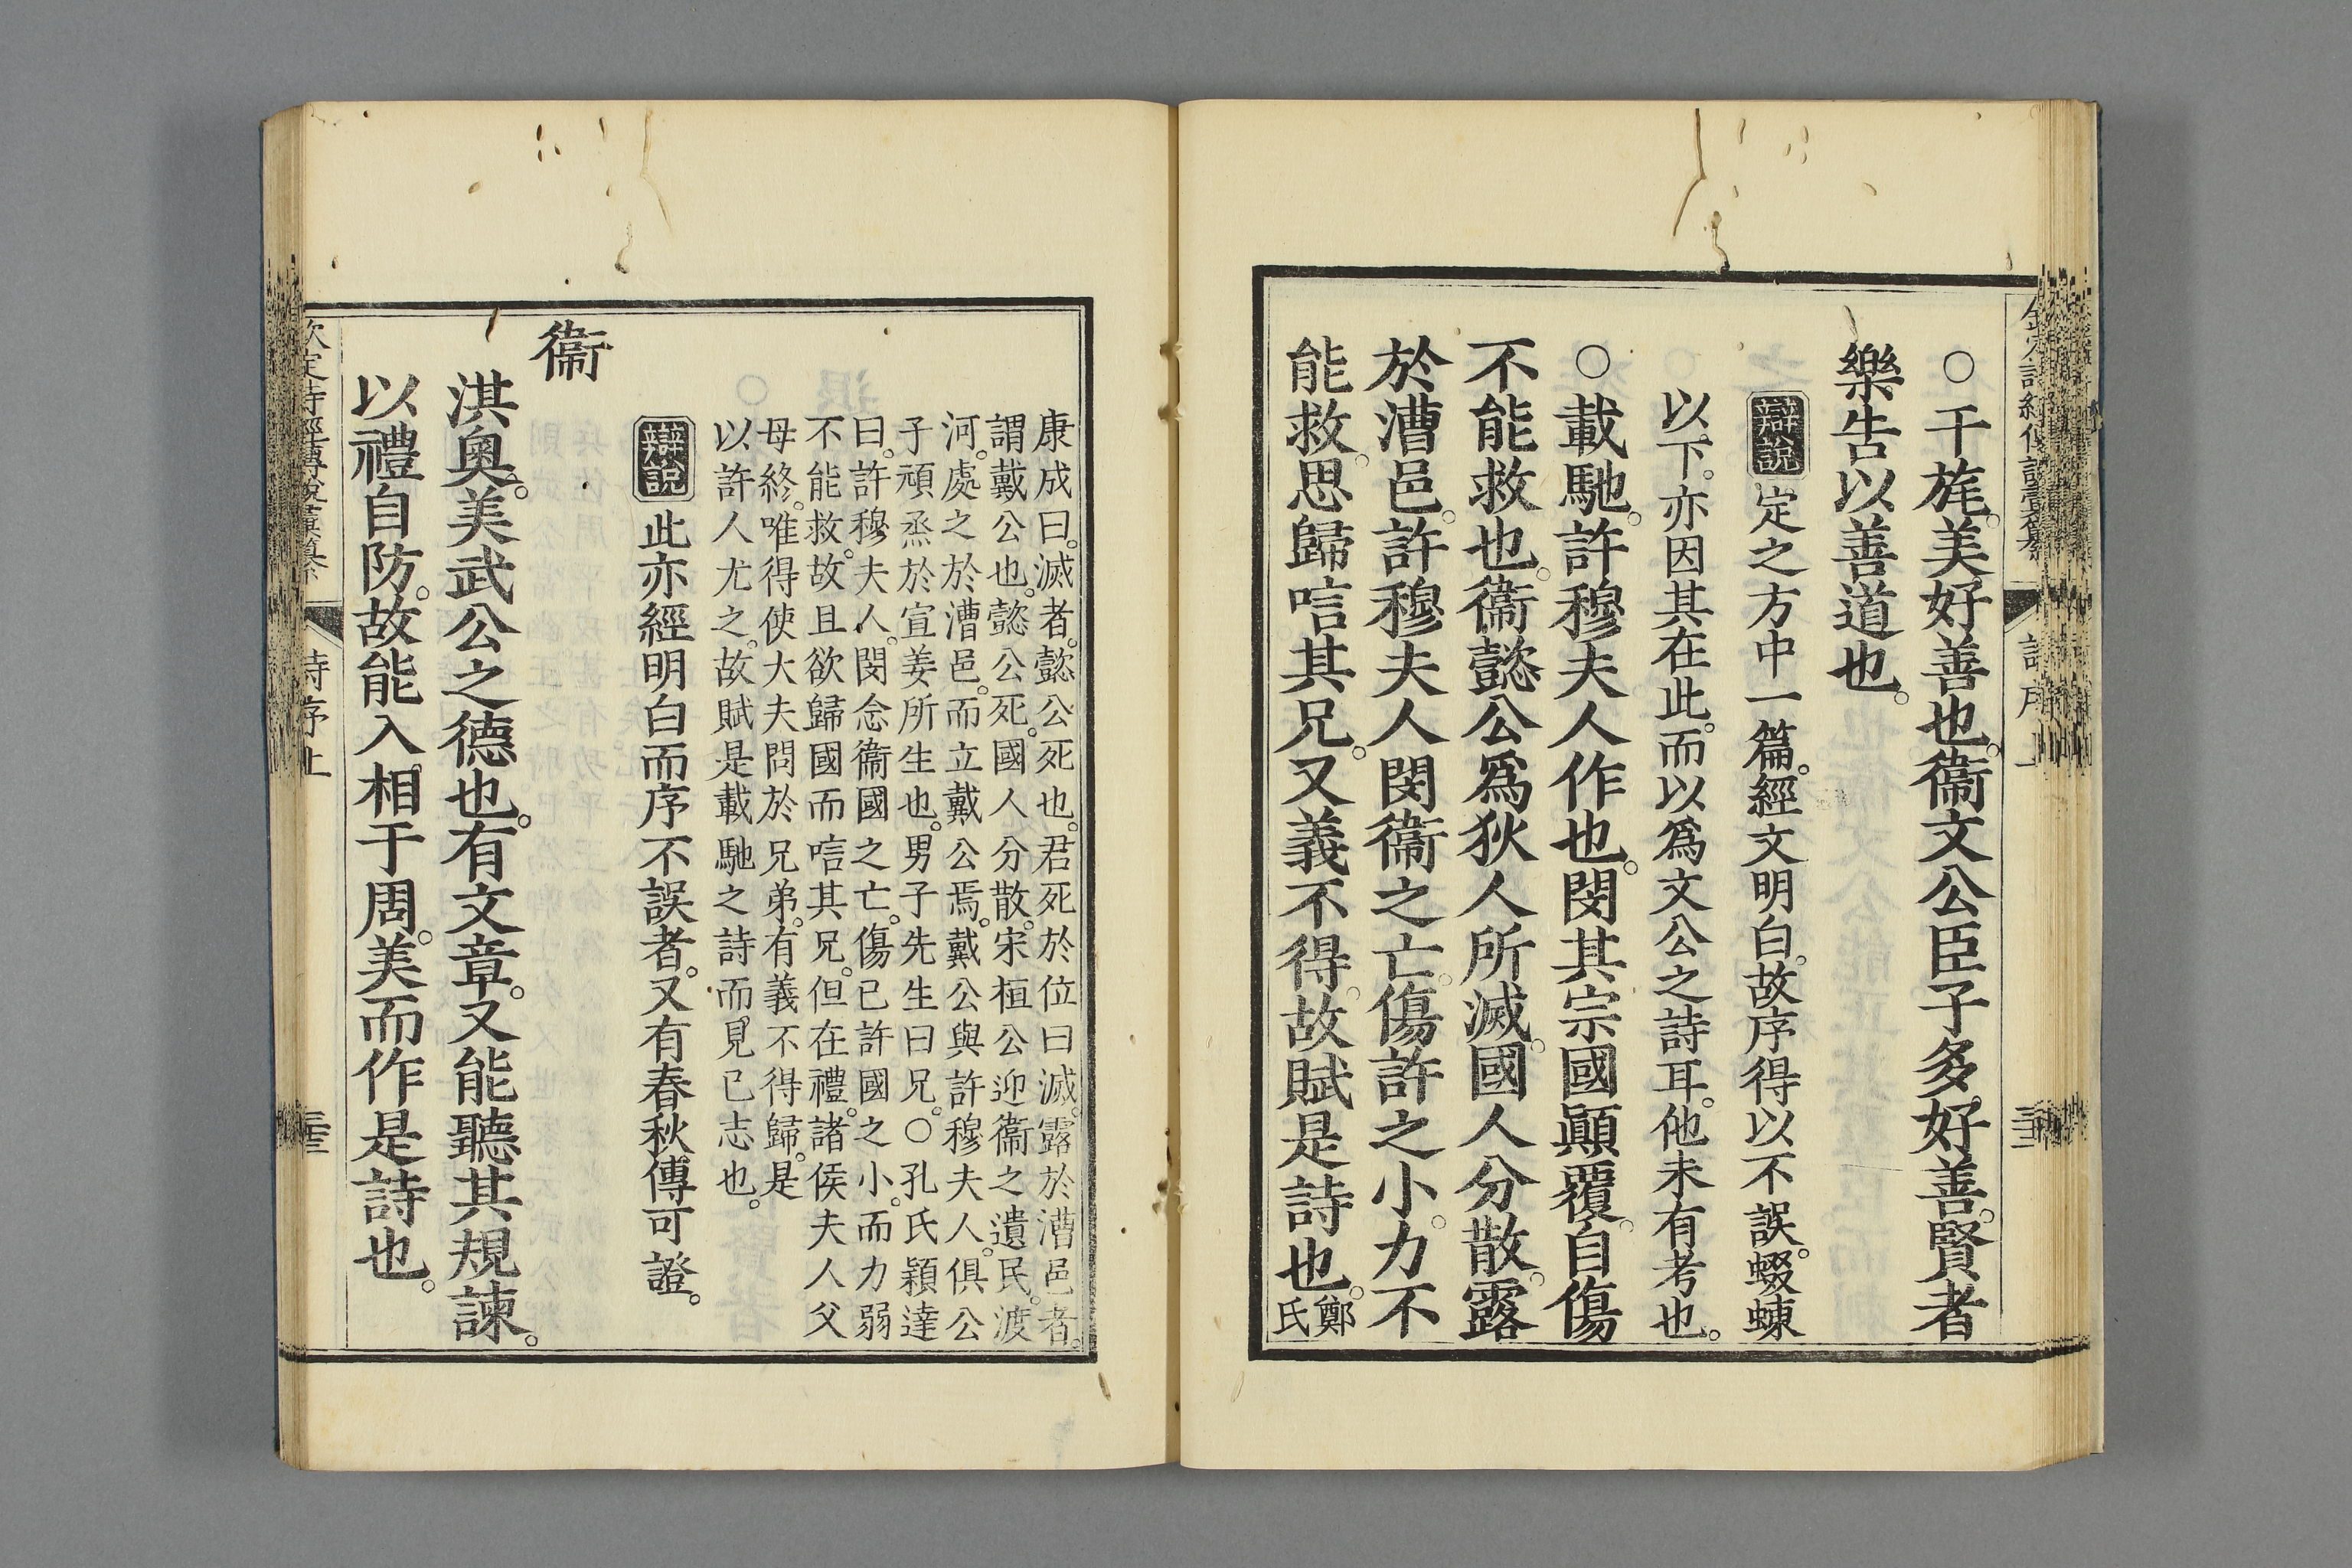 ○干旄。美好善也。衞文公臣子多好善。賢者
樂告以善道也。
辯說
定之方中一篇。經文明白。故序得以不誤。蝃蝀
以下。亦因其在此。而以爲文公之詩耳。他未有考也。
○載馳。許穆夫人作也。閔其宗國顚覆。自傷
不能救也。衞懿公爲狄人所滅。國人分散。露
於漕邑。許穆夫人閔衞之亡。傷許之小。力不
能救。思歸唁其兄。又義不得。故賦是詩也。鄭
氏
康成曰。滅者。懿公死也。君死於位曰滅。露於漕邑者。
謂戴公也。懿公死。國人分散。宋桓公迎衞之遺民。渡
河。處之於漕邑。而立戴公焉。戴公與許穆夫人。俱公
子頑烝於宣姜所生也。男子先生曰兄。○孔氏穎達
曰。許穆夫人。閔念衞國之亡。傷已許國之小。而力弱
不能救。故且欲歸國而唁其兄。但在禮。諸侯夫人父
母終。唯得使大夫問於兄弟。有義不得歸。是
以許人尤之。故賦是載馳之詩而。見已志也。
辯說
此亦經明白而序不誤者。又有春秋傳可證。
衞
淇奧。美武公之德也。有文章。又能聽其規諫。
以禮自防。故能入相于周。美而作是詩也。
欽定詩經傳說彙纂
詩序上